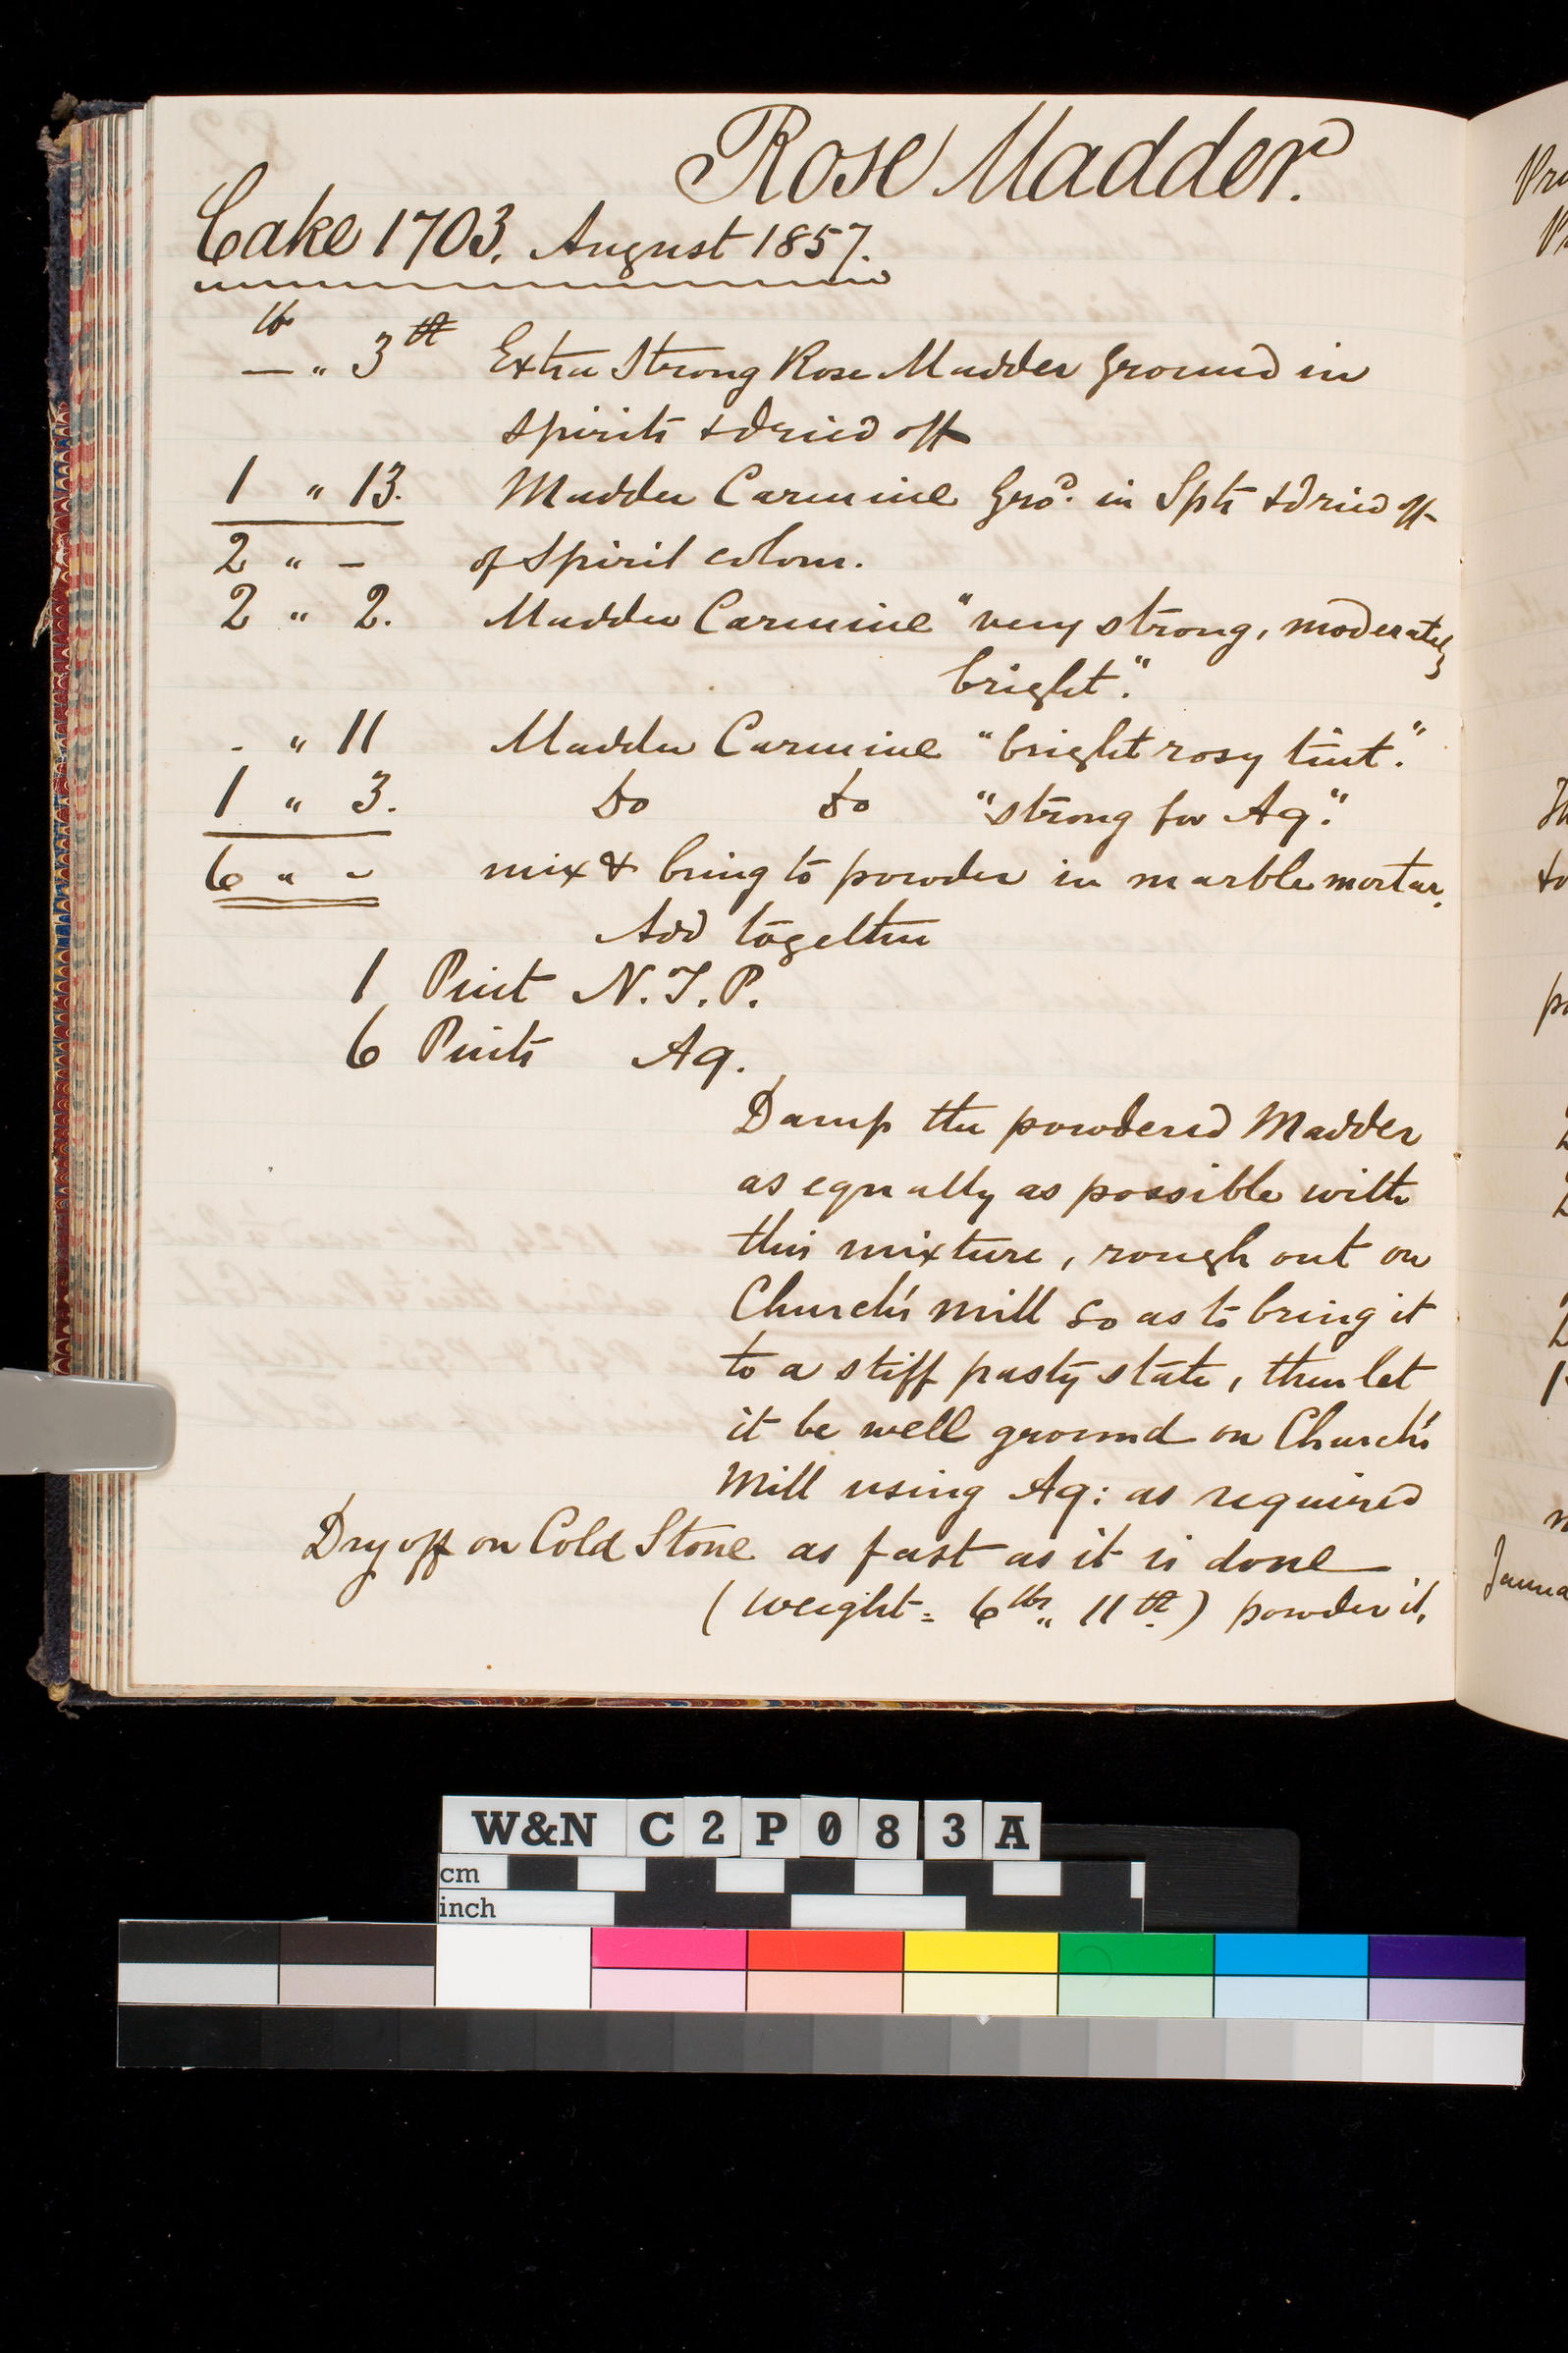 Rose Madder.
Cake 1703. August 1857.
lb
— „ 3 Extra Strong Rose Madder Ground in
spirits & dried off
1 „ 13. Madder Carmine Gro^d. in Spts & dried off
2 „ – of Spirit colour.
2 „ 2. Madder Carmine "very strong, moderately
bright."
- „ 11 Madder Carmine "bright rosy tint."
1 „ 3. Do Do "strong for Aq."
6 „ – mix & bring to powder in marble mortar.
Add together
1 Pint N.T.P.
6 Pints Aq.
Damp the powdered Madder
as equally as possible with
this mixture, rough out on
Church's mill so as to bring it
to a stiff pasty state, then let
it be well ground on Church's
Mill using Aq: as required
Dry off on Cold Stone as fast as it is done
(weight = 6 lbs „ 11) powder it,
Janua
W&N C2P083A
cm
inch